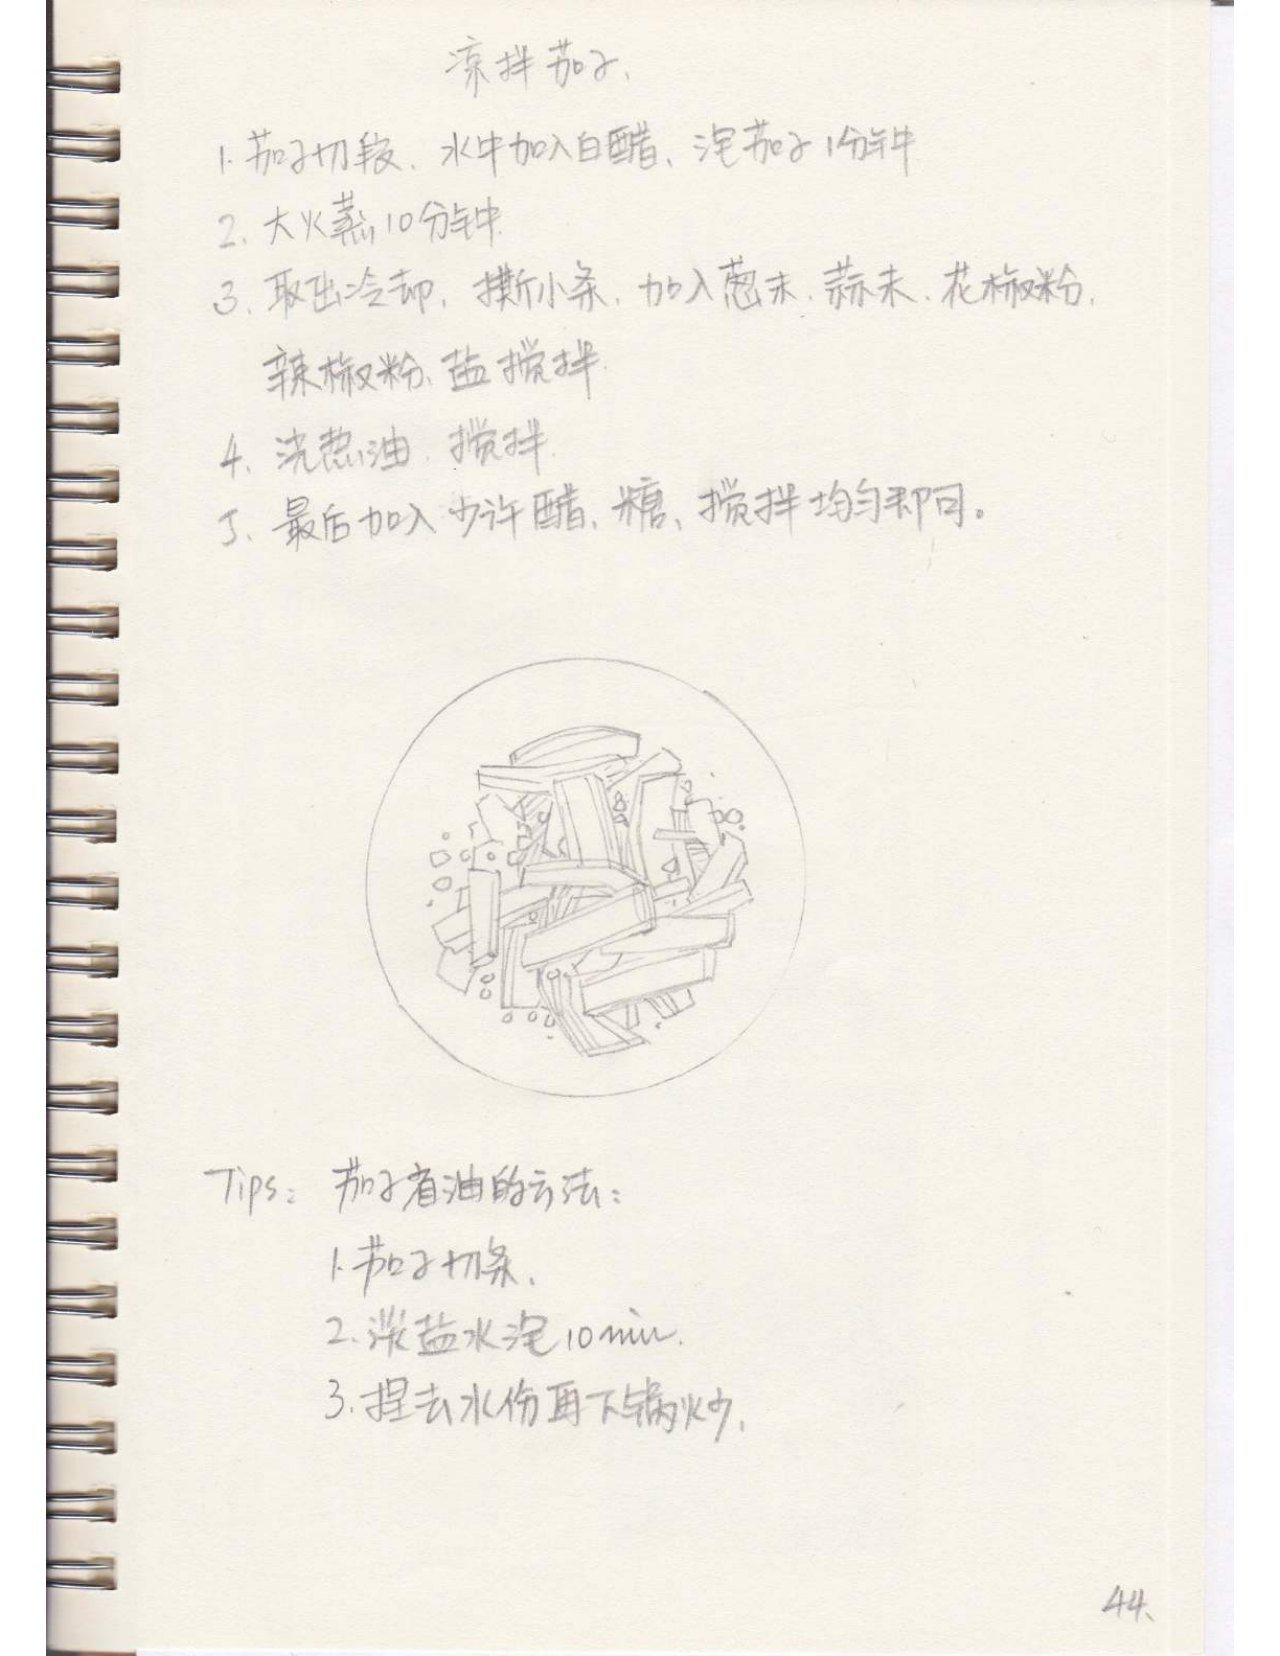 凉拌茄子.
1. 茄子切段. 水中加入白醋、泡茄子1分钟
2. 大火蒸10分钟.
3. 取出冷却, 撕小条, 加入葱末、蒜末、花椒粉、
辣椒粉、盐搅拌.
4. 浇热油. 搅拌.
5. 最后加入少许醋、糖、搅拌均匀即可。
Tips: 茄子省油的方法:
1. 茄子切条.
2. 淡盐水泡10min.
3. 捏去水份再下锅炒.
44.